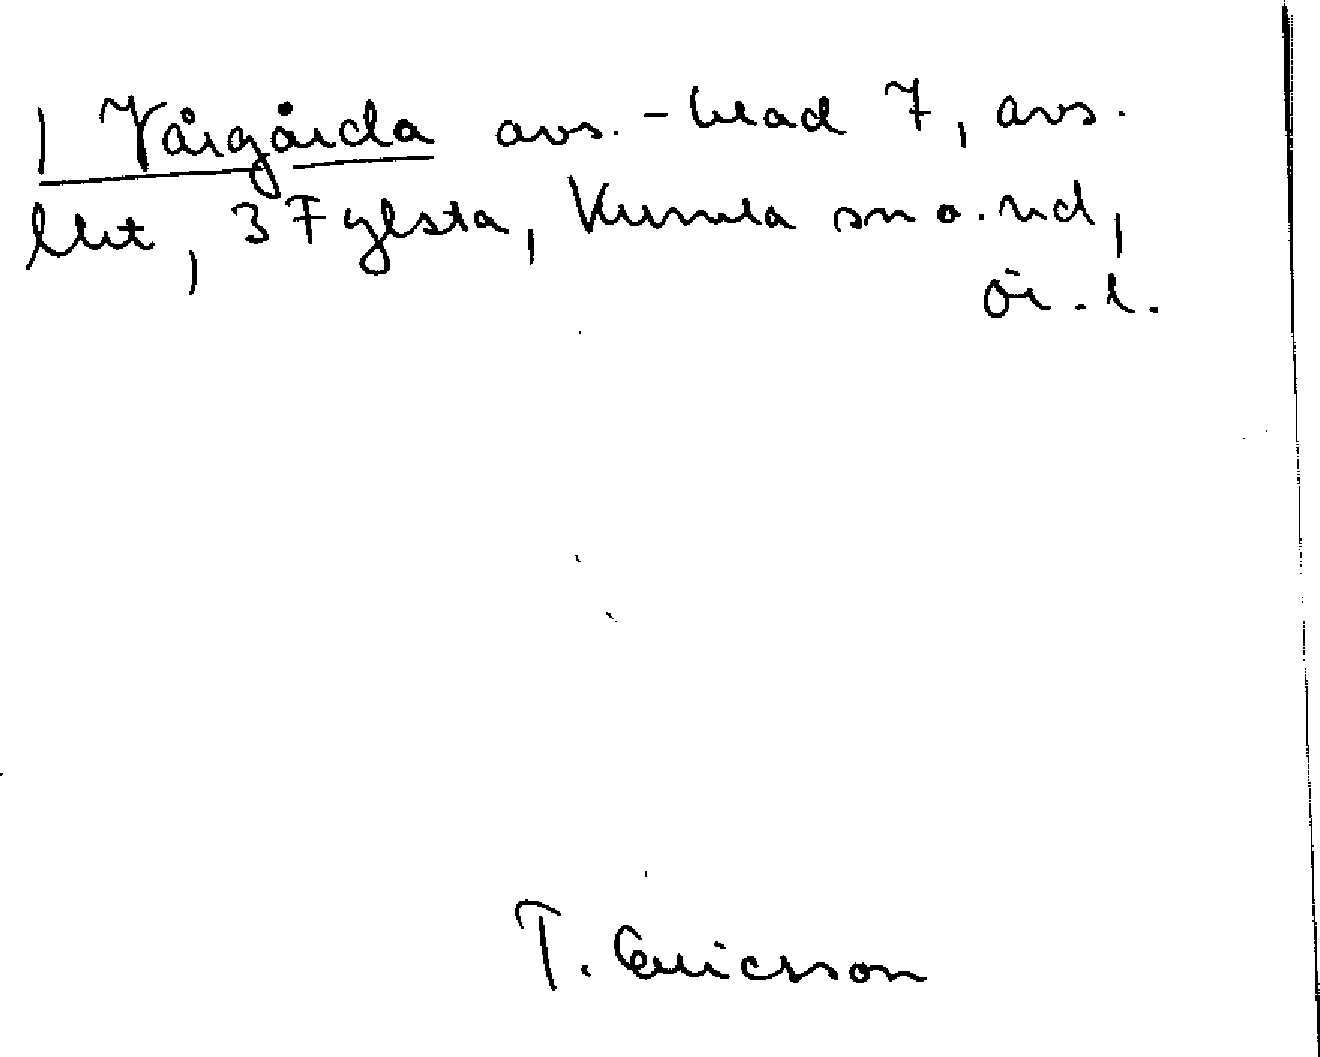 1 Vårgårda avs. - blad 7, avs.
litt, 3 Fylsta, Kumla sn o. hd,
ör. l.
T. Ericsson